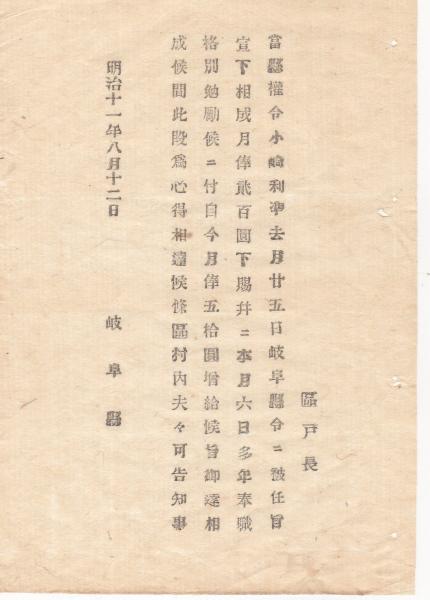 區戸長
當縣權令小崎利準去月廿五日岐阜縣令ニ被任旨
宣下相成月俸貮百圓下賜幷ニ本月六日多年奉職
格別勉勵候ニ付自今月俸五拾圓增給候旨御達相
成候間此段爲心得相達候條區村内夫々可告知事
明治十一年八月十二日
岐阜縣